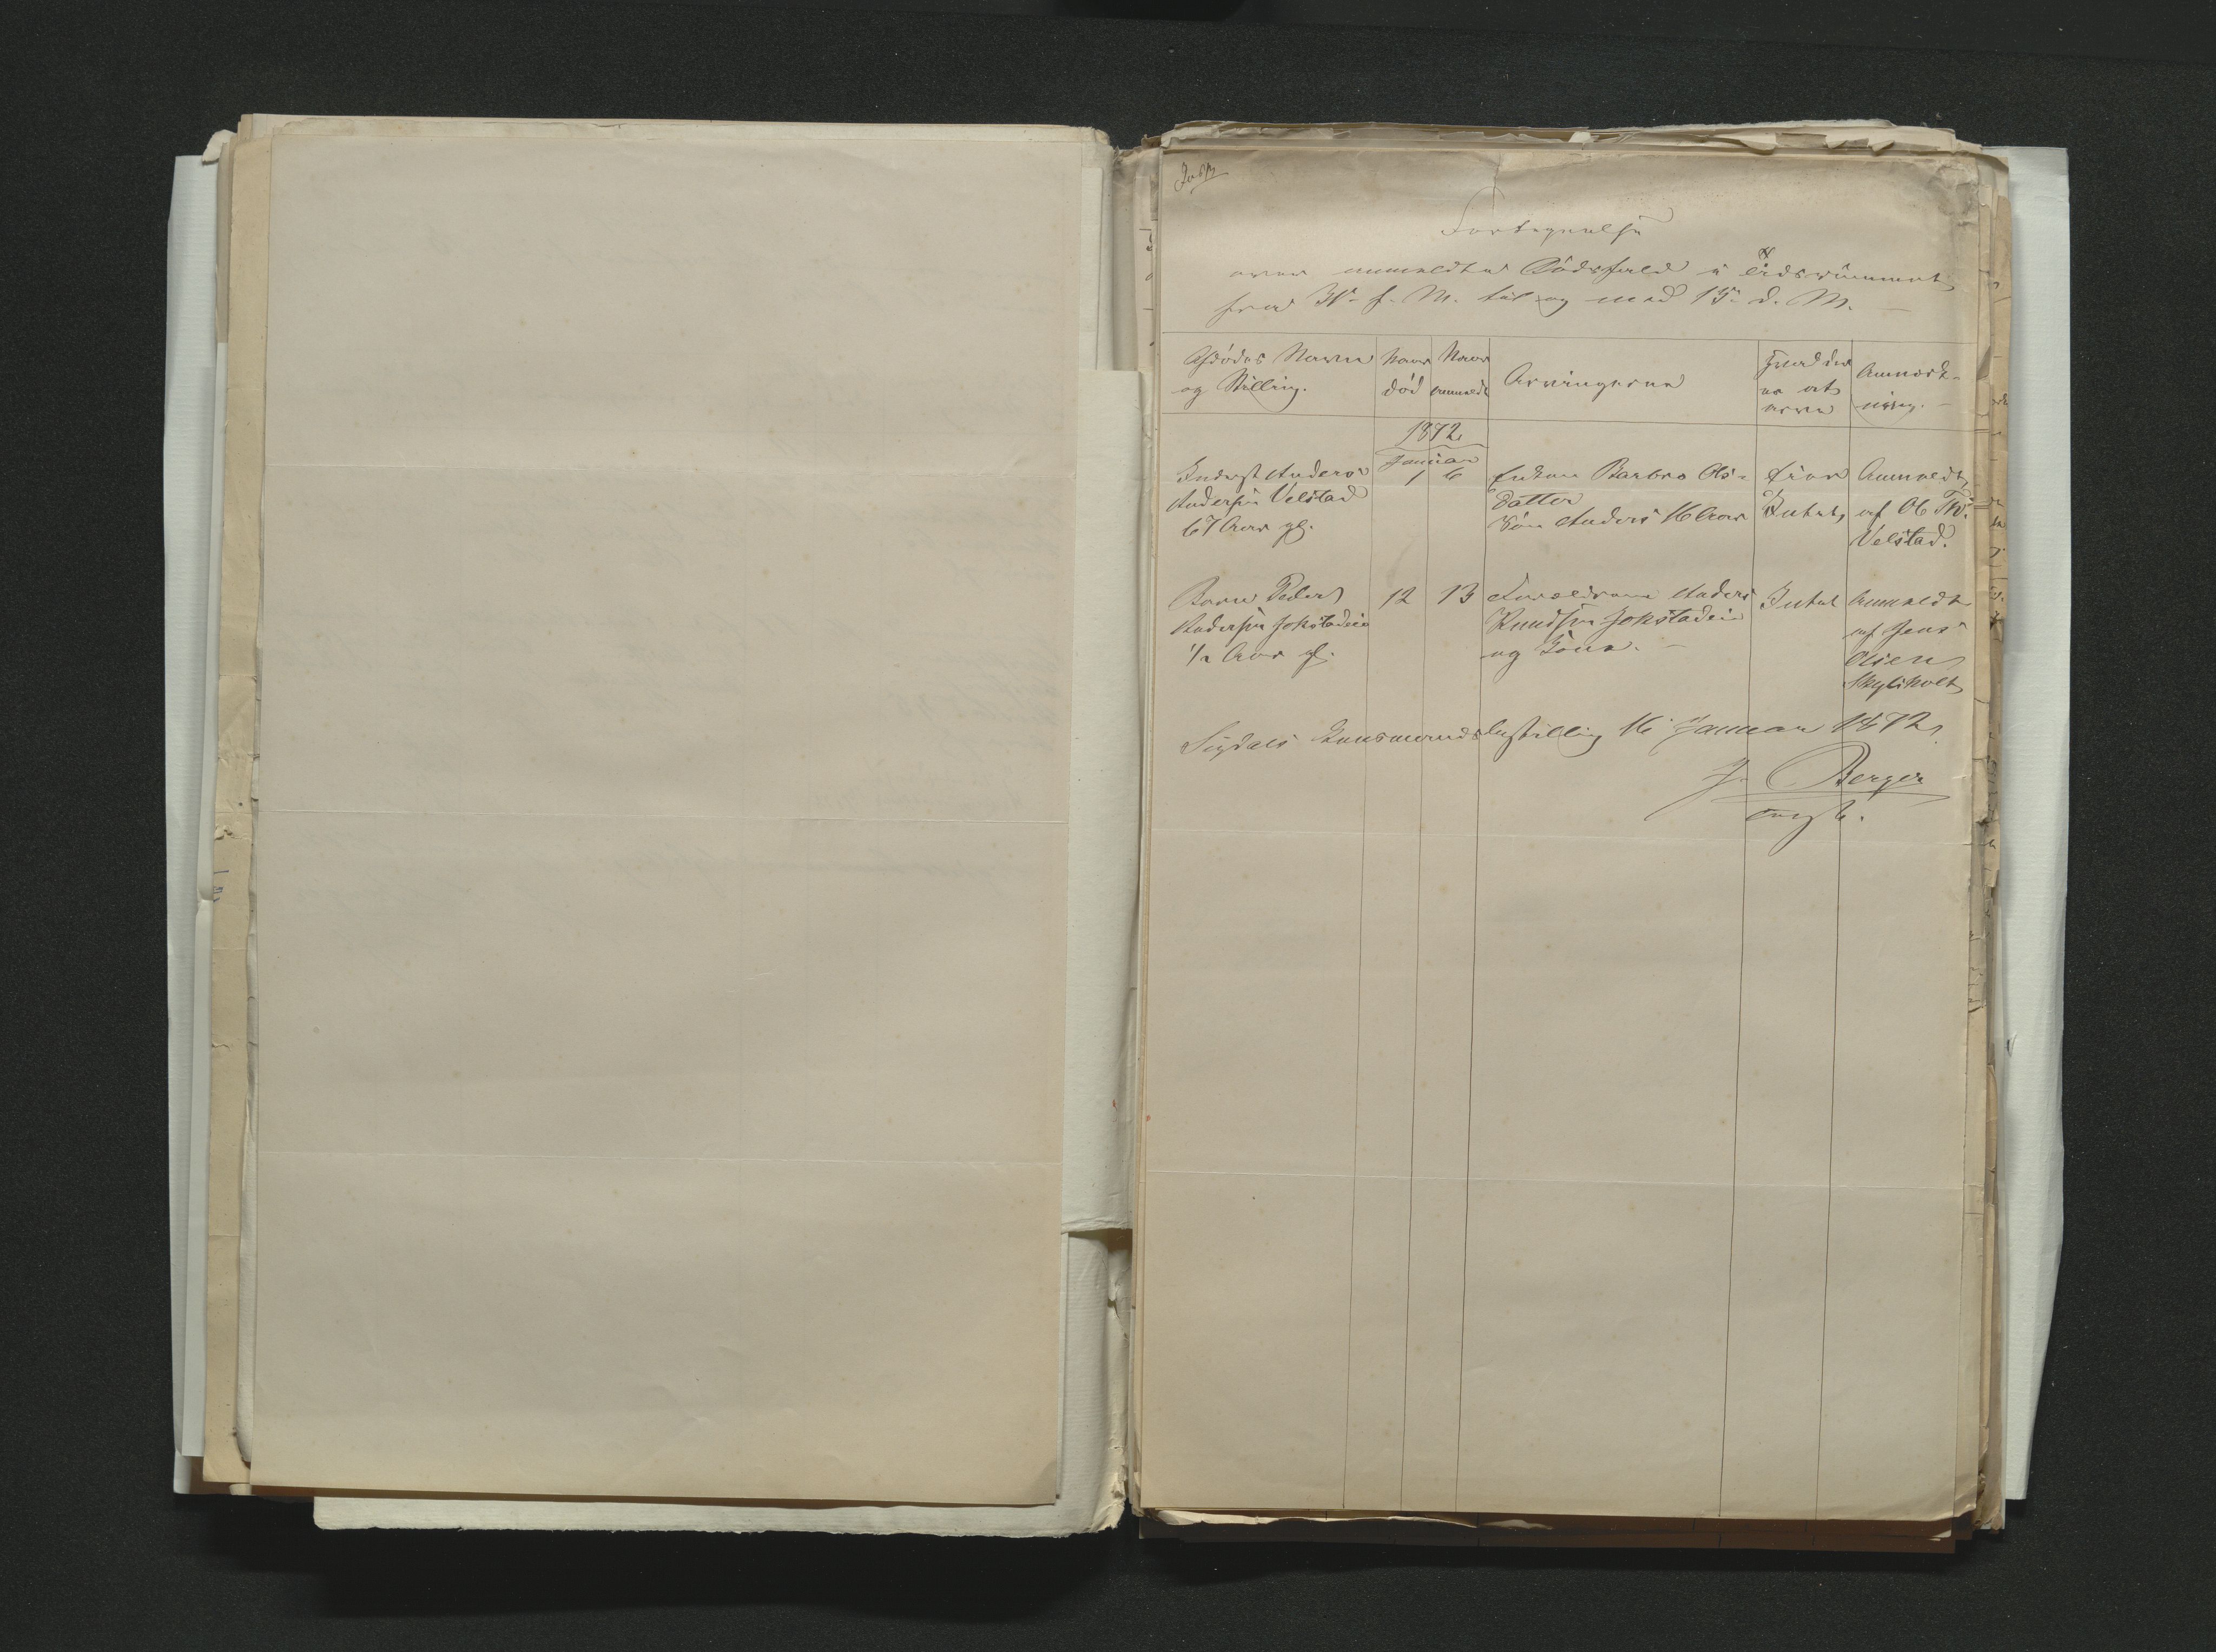 Fortegnelse
over anmeldte Dødsfald i
fra 31te f. M. til og med 15de d. M.
Afdødes Navn
og Stilling.
Naar
død
Naar
anmeldt
Arvingerne
Hvad der
er at
arve
Anmærk-
ning.
1872
Januar
Inderst Anders
Andersen Velstad
67 Aar gl.
1
6
Enken Barbro Ols-
datter
Søn Anders 16 Aar
Intet,
Anmeldt
af Ole
Velstad.
Barn Peder
Andersen Jokstadeie
1/2 Aar gl.
12
13
Forældrene Anders
Knudsen Jokstadeie
og Kone.
Intet
Anmeldt
af Jens
Olsen
Sigdals Lensmandsbestilling 16 Januar 1872
Berger